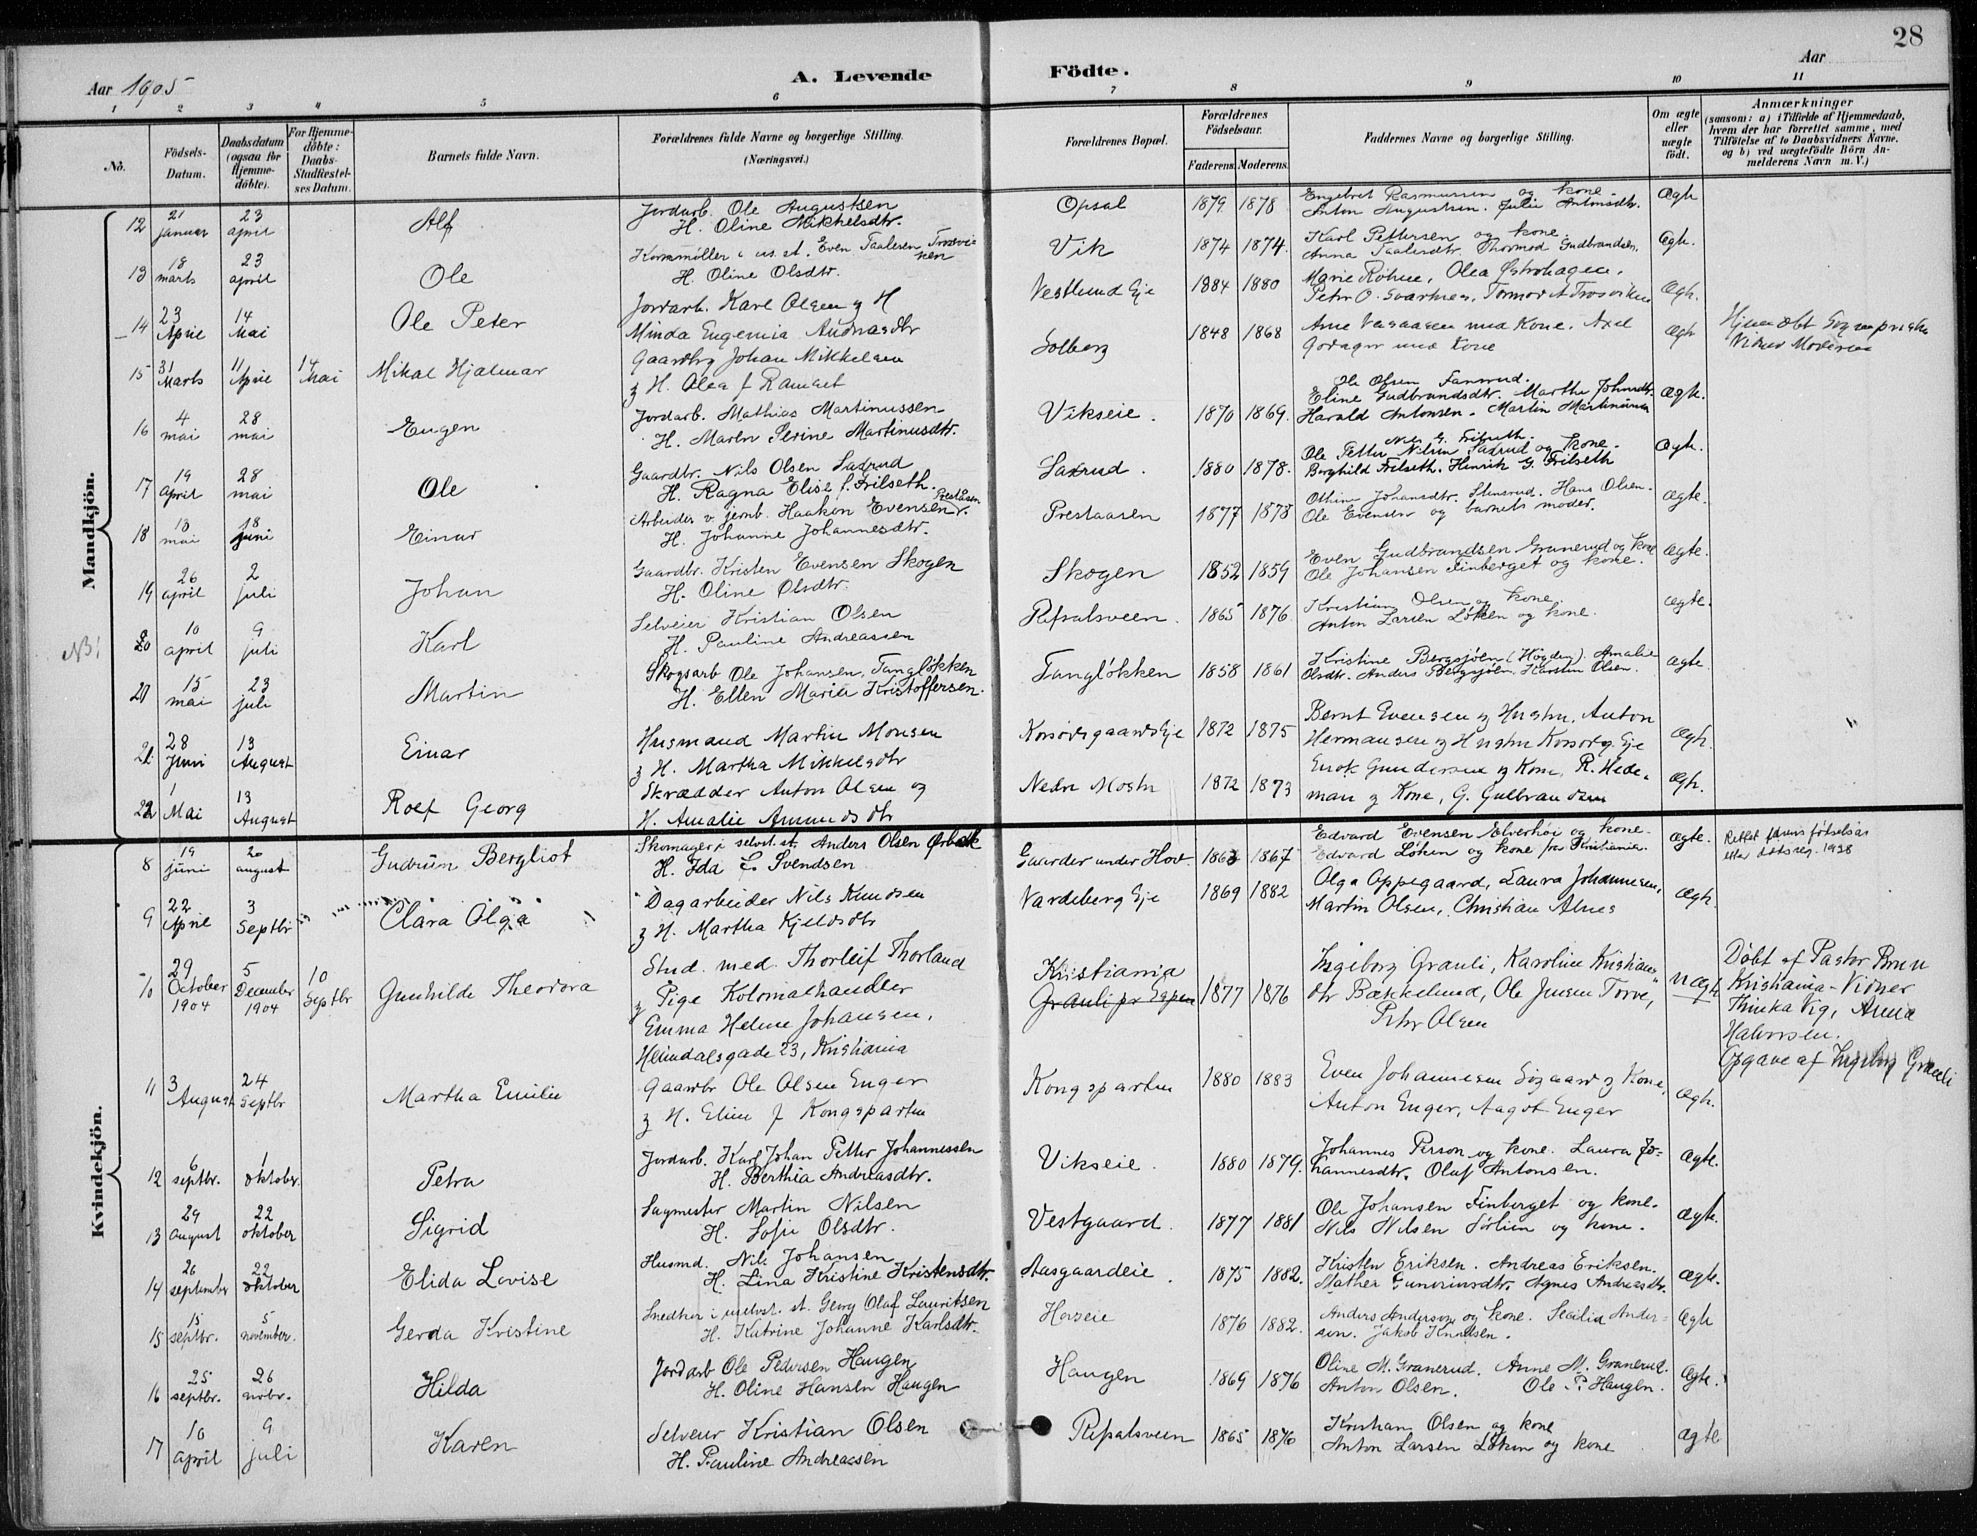 28
Aar 1905
A. Levende Födte.
Aar
1 2 3 4 5 6 7 8 9 10 11
No.
Födsels-Datum.
Daabsdatum (ogsaa for Hjemme-döbte).
For Hjemme-döbte: Daabs-Stadfæstel-ses Datum.
Barnets fulde Navn.
Forældrenes fulde Navne og borgerlige Stilling. (Næringsvei.)
Forældrenes Bopæl.
Forældrenes Födselsaar.
Faderens. Moderens.
Faddernes Navne og borgerlige Stilling.
Om ægte eller uægte födt.
Anmærkninger (saasom: a) i Tilfælde af Hjemmedaab, hvem der har forrettet samme, med Tilföielse af to Daabsvidners Navne. og b) ved uægtefödte Börn An-melderens Navn m. V.)
Mandkjön.
12 21 januar 23 april Alf Jordarb. Ole Augustsen H. Oline Mikkelsdtr. Opsal 1879 1878 Engebret Rasmussen og kone. Anton Augustsen. Julie Antonsdtr. Ægte
13 18 marts 23 april Ole Even Taalesen H. Oline Olsdtr. Vik 1874 1874. Karl Pettersen og kone. Anna Taalesdtr. Thormod Gudbrandsen. Ægte.
14 23 April 14 Mai Ole Peter Jordarb. Karl Olsen og H Minda Eugenia Andreasdtr Vestlund Eje 1884 1880 Marie Röhne, Olea
15 31 Marts 11 April 14 Mai Mikal Hjalmar Gaardbrg Johan Mikkelsen og H. Olea f Ramset Solberg 1848 1868 Arne med Kone. Axel Godager med Kone Ægte
16 4 mai 28 mai Eugen Jordarb. Mathias Martinussen H. Maren Perine Martinusdtr. Vikseie. 1870 1869. Ole Olsen Fanerud. Eline Gudbrandsdtr. Martha Johnsdtr. Harald Antonsen. Martin Martinussen Ægte.
17 19 april 28 mai Ole Gaardbr. Nils Olsen Saxrud H. Ragna Elise f. Frilseth. Saxrud. 1880 1878. Nils G. Frilseth. Ole Petter Nilsen Saxrud og kone. Borghild Frilseth. Henrik G. Frilseth Ægte.
18 13 mai 18 juni Einar Arbeider v. jernb. Haakon Evensen Prestaasen. H. Johanne Johannesdtr. Prestaasen 1877 1878 Othine Johansdtr. Stensrud. Hans Olsen. Ole Evensen og barnets moder. Ægte.
19 26 april 2 juli Johan Gaardbr. Kristen Evensen Skogen H. Oline Olsdtr. Skogen 1852 1859 Even Gudbrandsen Granerud og kone Ole Johansen Finberget og kone. Ægte.
NB! 20 10 april 9 juli Karl Selveier Kristian Olsen H. Pauline Andreassen Ripsalsveen. 1865 1876. Kristian Olsen og kone. Anton Larsen Løkken og kone. Ægte.
21 15 mai 23 juli Martin Skogsarb Ole Johansen, Tangløkken H. Ellen Maria Kristoffersen. Tangløkken 1858 1861 Kristine Bergsjøen (Høgden). Amalie Olsdtr. Anders Bergsjøen, Karsten Olsen. Ægte.
28 Juni 13 August Einar Husmand Martin Monsen og H. Martha Mikkelsdtr Korsødegaards Eje 1872 1875 Bernt Evensen og Hustru, Anton Hermansen og Hustru Korsødg. Eje Ægte.
22 1 Mai 13 August Rolf Georg Skrædder Anton Olsen og H. Amalie Amundsdtr Nedre Mostu 1872 1873 Enok Gundersen og Kone, R. Hede-man og Kone, G. Gulbrandsen Ægte.
Kvindekjön.
8 19 juni 20 august Gudrun Bergliot Skomager i selvst. st. Anders Olsen Ørbæk H. Ida L. Svendsen Gaarder under Hov 1863 1867 Edvard Evensen Elverhöi og kone. Edvard Løken og kone fra Kristiania. Ægte. Rettet farens fødselsår etter dåbsreg. 1938
9 22 April 3 Septbr Clara Olga Dagarbeider Nils Knudsen og H. Martha Kjeldsdtr Vardeberg Eje 1869 1882 Olga Oppegaard, Laura Johannesen, Martin Olsen, Christian Alnes Ægte.
10 29 October 1904 5 December 1904 10 Septbr Gunhilde Theodora Stud. med. Thorleif Thorland og Pige Kolonialhandler Emma Helene Johansen, Heimdalsgade 23, Kristiania Kristiania 1877 1876 Ingeborg Grauli, Karoline Kristians-dtr Bækkelund, Ole Jensen Torve, Petr Olsen uægte Döbt af Pastor Brun Kristiania - Vidner Thinka Vig, Anna Halvorsen. Opgave af Ingeborg Grauli
11 3 August 24 Septbr Martha Emilie Gaardbr Ole Olsen Enger og H. Eline f Kongsparten Kongsparten 1880 1883 Even Johannesen Sogaard og Kone, Anton Enger, Aagot Enger Ægte.
12 6 septbr. 1 oktober. Petra Jordarb. Karl Johan Petter Johannessen H. Berthea Andreasdtr. Vikseie. 1880 1879. Johannes Person og kone. Laura Jo-hannesdtr. Olaf Antonsen. Ægte.
13 29 august 22 oktober Sigrid Sagmester Martin Nilsen H. Sofie Olsdtr. Vestgaard. 1877 1881 Ole Johansen Finberget og kone. Nils Nilsen Sørlien og kone. Ægte.
14 26 september 22 oktober Elida Lovise Husmd. Nils Johansen H. Lina Kristine Kristensdtr. Aasgaardeie. 1875 1882. Kristen Eriksen. Andreas Eriksen. Mathea Gunerusdtr. Agnes Andreasdtr. Ægte.
15 15 septbr. 5 november. Gerda Kristine Snedker i uselvst. st. Georg Olaf Lauritsen H. Katrine Johanne Karlsdtr. Horseie 1876 1882. Anders Anderson og kone. Secilia Ander-sen. Jakob Knudsen. Ægte
16 25 septbr. 26 novbr. Hilda Jordarb Ole Pedersen Haugen H. Oline Hansen Haugen Haugen 1869 1876 Oline M. Granerud. Anne M. Granerud. Anton Olsen. Ole P. Haugen. Ægte.
17 10 april 9 juli Karen Selveier Kristian Olsen H. Pauline Andreassen Ripsalsveen 1865 1876 Kristian Olsen og kone Anton Larsen Løken og kone ægte